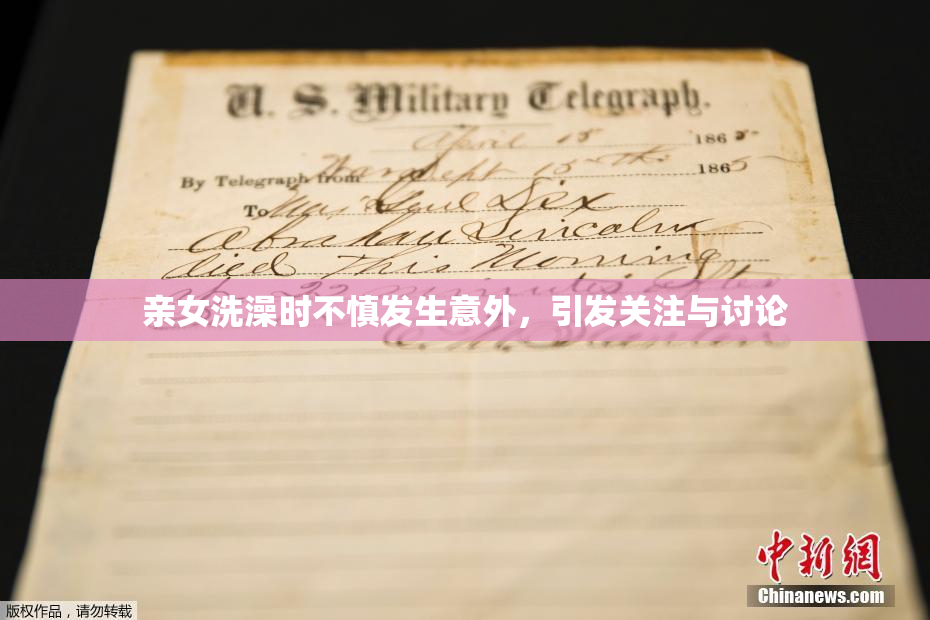 U. S. Military Telegraph.
April 15 1865
By Telegraph from War Dept 15th 1865
To Maj Genl Dix
Abraham Lincoln
died This Morning
at 22 minutes after
亲女洗澡时不慎发生意外，引发关注与讨论
E. M. Stanton
中新网
Chinanews.com
版权作品，请勿转载